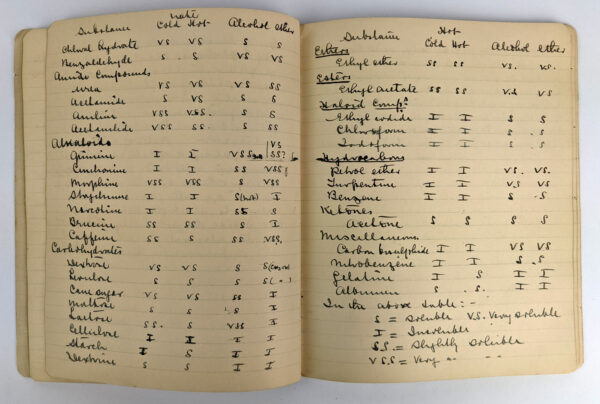 Substance Water Cold Hot Alcohol Ether
Chloral hydrate VS VS S S
Benzaldehyde S S VS VS
Amide Compounds
Urea VS VS VS SS
Acetamide S VS S S
Aniline VSS VSS. S S
Acetanilide VSS SS. S SS
Alkaloids VS
Quinine I I VSS SS?
Cinchonine I I SS VSS
Morphine VSS VSS S VSS
Strychnine I I S(hot) I
Narcotine I I SS S
Brucine SS SS S I
Caffeine SS S SS VSS.
Carbohydrates
Dextrose VS VS S
Levulose S S S
Cane sugar VS VS SS I
Maltose S S S I
Lactose S S I I
Cellulose SS. S VSS I
Starch I I I I
Dextrine I S I I
S S I I
Substance Hot Cold Hot Alcohol ether
Ethers
Ethyl ether SS SS VS. VS.
Esters
Ethyl acetate SS SS VS VS
Haloid Comp.ds
Ethyl iodide I I S S
Chloroform I I S . S
Iodoform I I S . S
Hydrocarbons
Petrol ether I I VS. VS.
Turpentine I I VS VS
Benzene I I S . S
Ketones
Acetone S S S S
Miscellaneous
Carbon bisulphide I I VS VS
Nitrobenzene I I S . S
Gelatine I S I I
Albumen S . S. I I
In the above table :-
S = soluble V.S. Very soluble
I = Insoluble
S.S = Slightly soluble
V S.S = Very " "